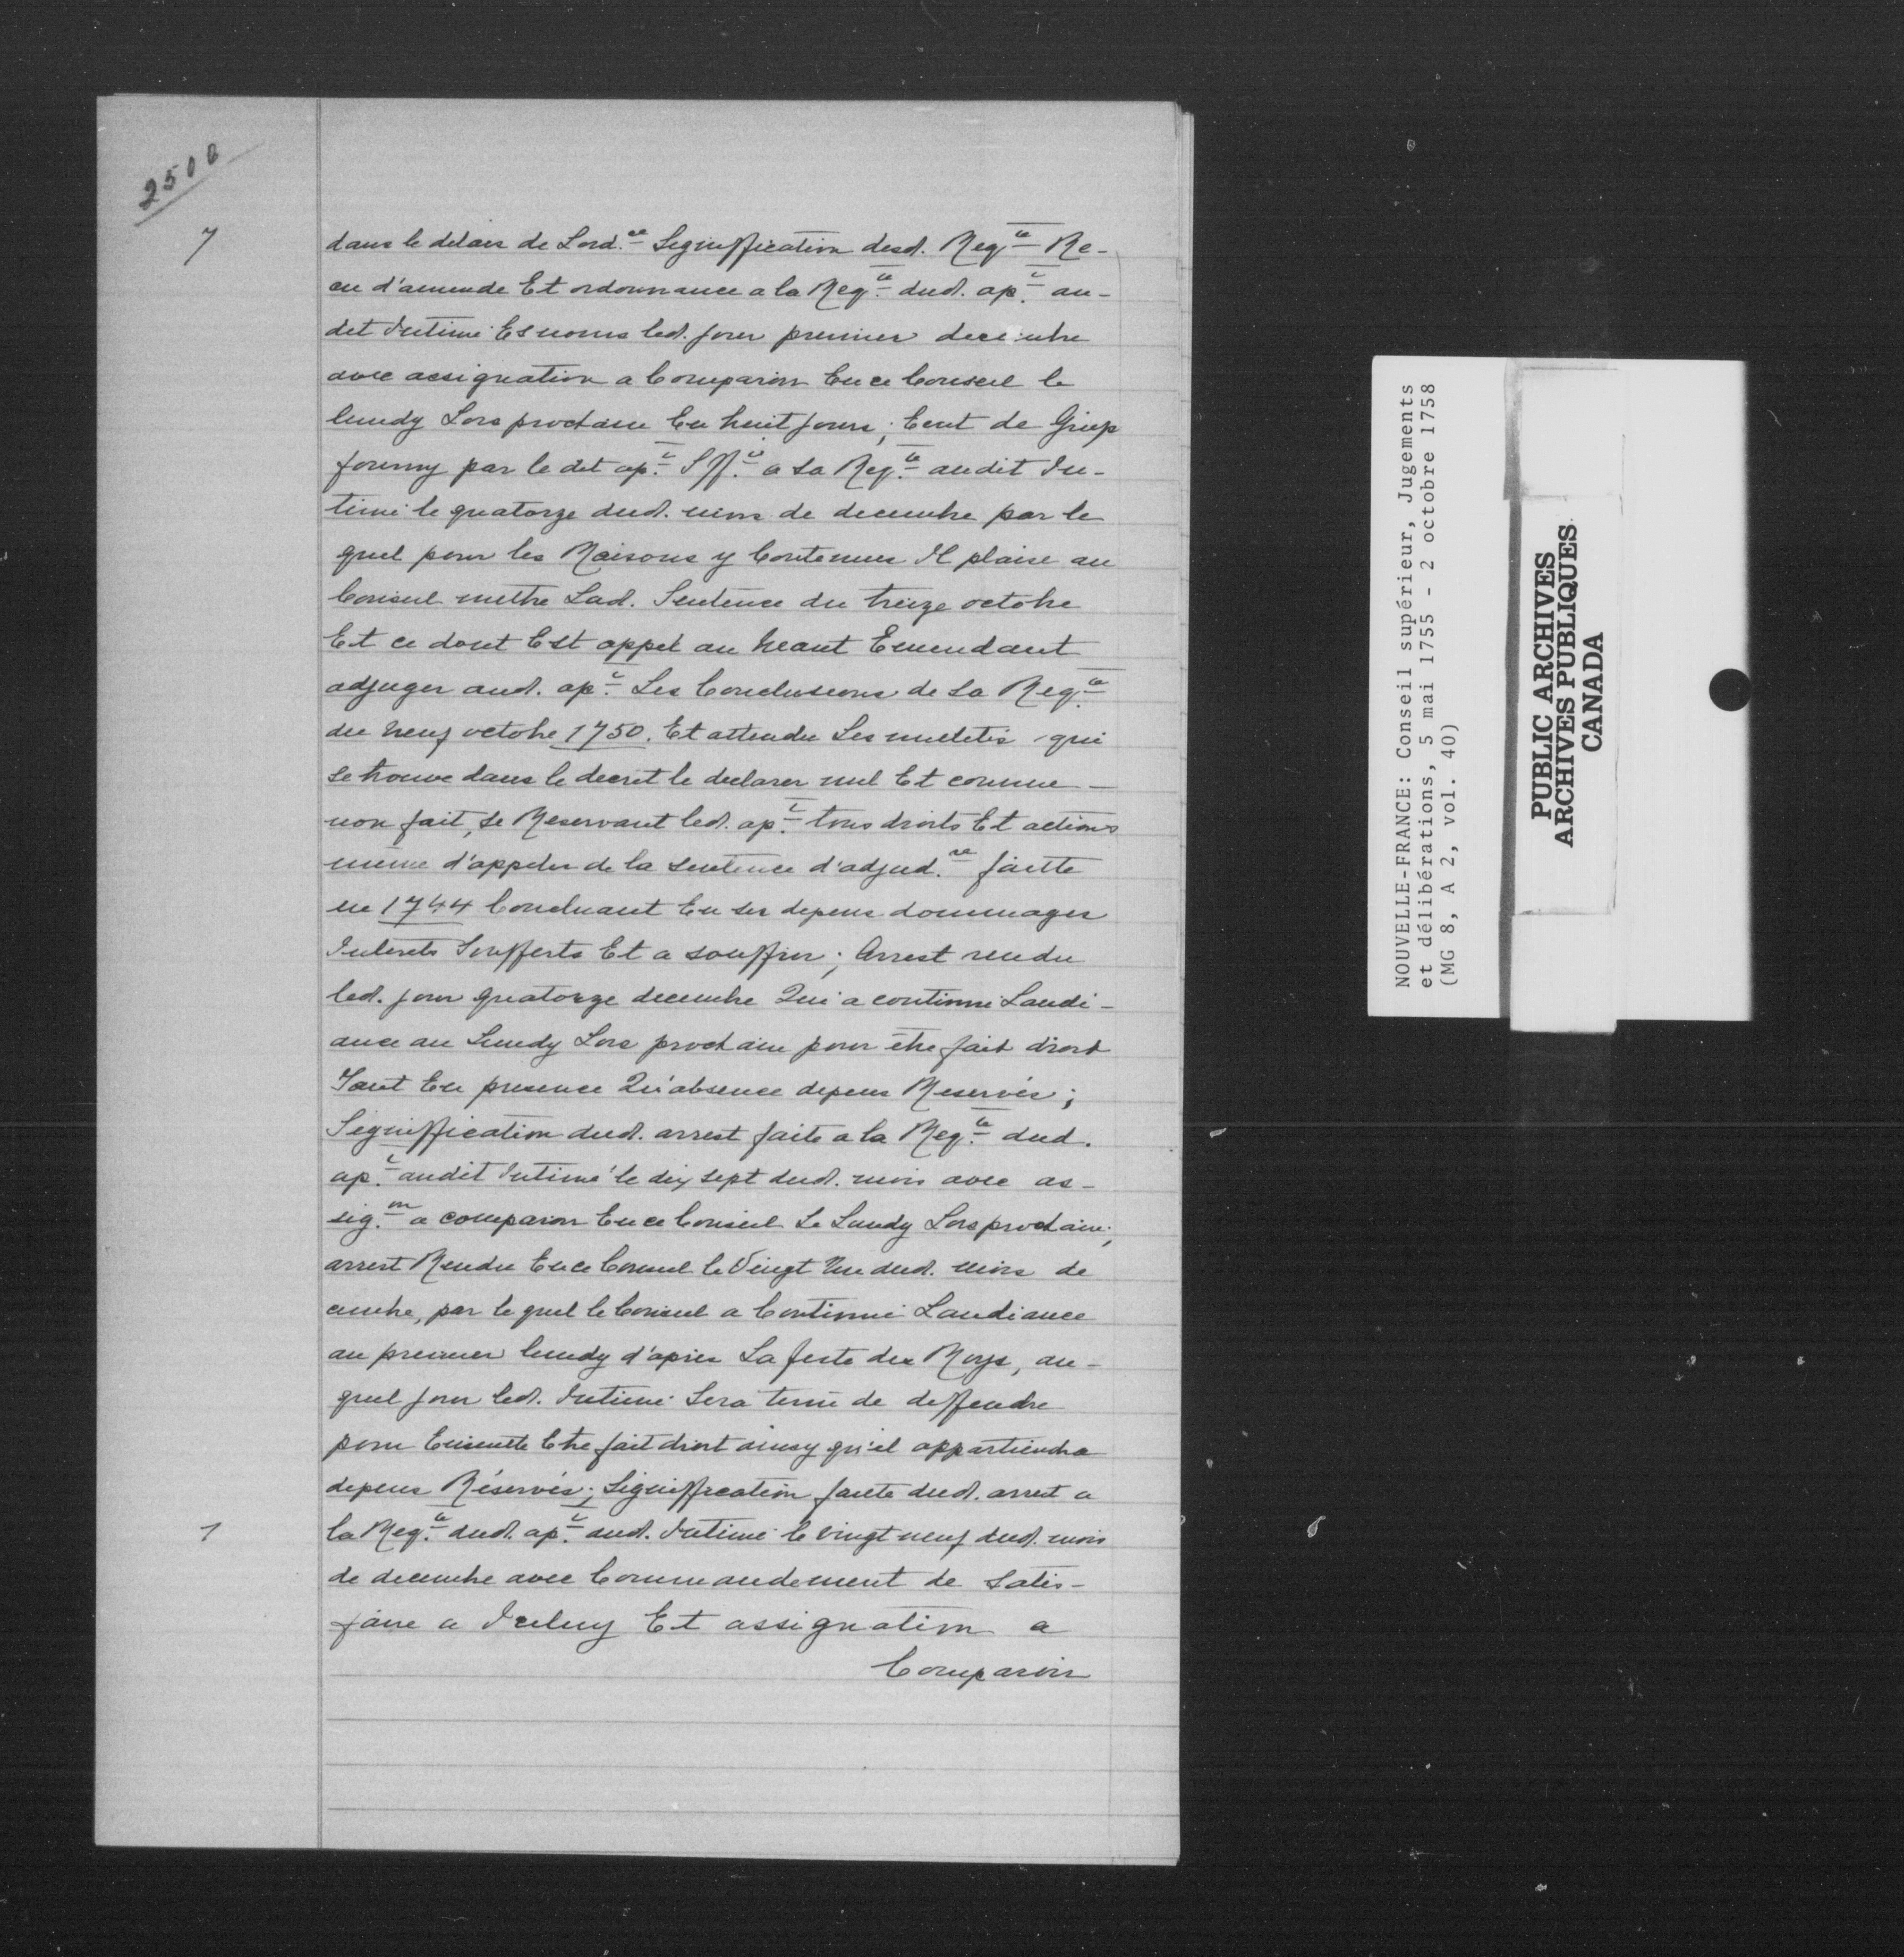 2500
7
dans le delais de Lord.ce Signiffication desd. Reqte Re-
cu d'amende Et ordonnance a la Reqte dud. apt au-
dit Intimé Es noms led. jour premier decembre
avec assignation a Comparoir En ce Conseil le
lundy Lors prochain En huit jours; Ecrit de Grief
fourny par le dit apt Sffié a Sa Reqte audit In-
timé le quatorze dud. mois de decembre par le
quel pour les Raisons y Contenues Il plaise au
Conseil mettre Lad. Sentence du treize octobre
Et ce dont Est appel au Neant Emendant
adjuger aud. apt Les Conclusions de Sa Reqte
du neuf octobre 1750. Et attendu Les nulletés qui
se trouve dans le decret le declarer nul Et comme -
non fait, se Reservant led. apt tous droits Et actions
même d'appeler de la sentence d'adjud.re faitte
en 1744 Concluant En ses depens dommages
Interets Soufferts Et a souffrir; Arrest rendu
led. jour quatorze decembre Qui a continué Laudi-
ance au Lundy Lors prochain pour être fait droit
Tant En presence Qu'absence depens Reservés;
Signiffication dud. arrest faite a la Reqte dud.
apt audit Intimé le dix sept dud. mois avec as-
sig.on a comparoir En ce Conseil Le Lundy Lors prochain;
arrest Rendu En ce Conseil le Vingt Un dud. mois de
cembre, par le quel le Conseil a Continué Laudiance
au premier lundy d'après La feste des Roys, au-
quel jour led. Intimé Sera tenu de deffendre
pour Ensuitte Etre fait droit ainsy qu'il appartiendra
depens Réservés; Signiffication faite dud. arrest a
1
la Reqte dud. apt aud. Intimé le vingt neuf dud. mois
de decembre avec Commandement de Satis-
faire a Iceluy Et assignation a
Comparoir
NOUVELLE-FRANCE: Conseil supérieur, Jugements
et délibérations, 5 mai 1755 - 2 octobre 1758
(MG 8, A 2, vol. 40)
PUBLIC ARCHIVES
ARCHIVES PUBLIQUES
CANADA